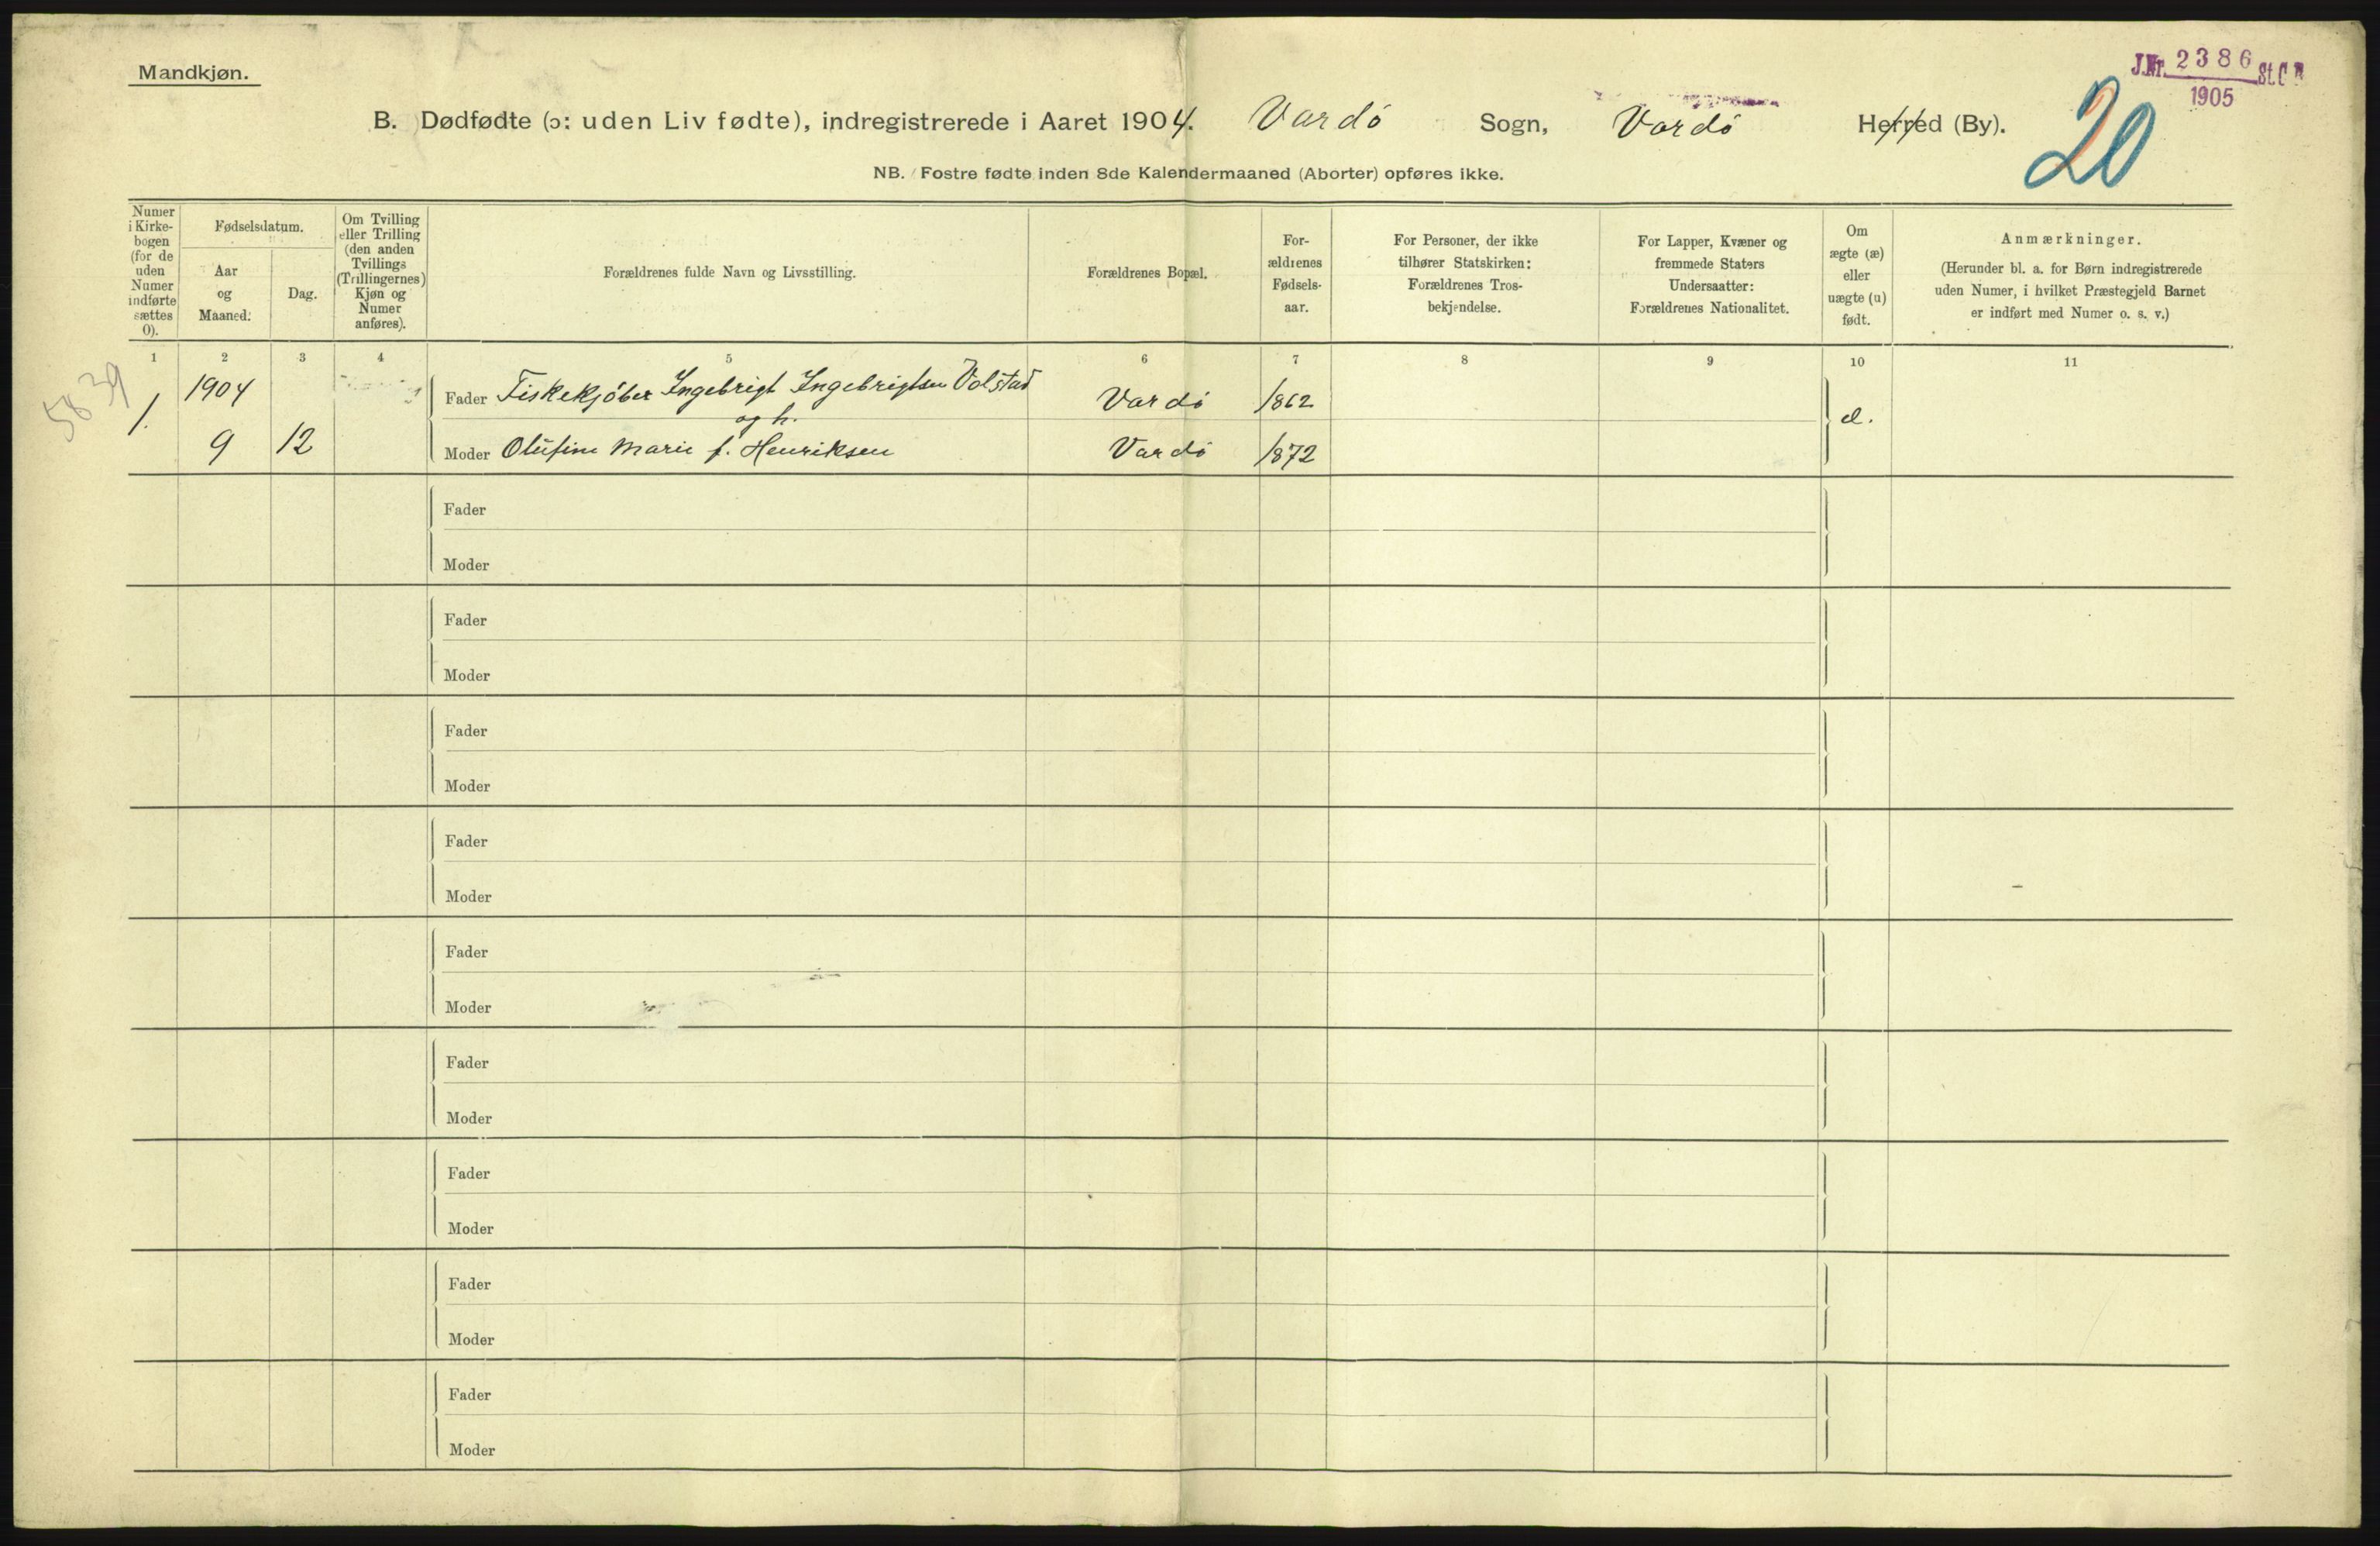 Mandkjøn.
J.Nr. 2386 St.C.B.
1905
20
B. Dødfødte (ɔ: uden Liv fødte), indregistrerede i Aaret 1904. Vardö Sogn, Vardö Herred (By).
NB. Fostre fødte inden 8de Kalendermaaned (Aborter) opføres ikke.
Numer
i Kirke-
bogen
(for de
uden
Numer
indførte
sættes
0).
Fødselsdatum.
Aar
og
Maaned.
Dag.
Om Tvilling
eller Trilling
(den anden
Tvillings
(Trillingernes)
Kjøn og
Numer
anføres).
Forældrenes fulde Navn og Livsstilling.
Forældrenes Bopæl.
For-
ældrenes
Fødsels-
aar.
For Personer, der ikke
tilhører Statskirken:
Forældrenes Tros-
bekjendelse.
For Lapper, Kvæner og
fremmede Staters
Undersaatter:
Forældrenes Nationalitet.
Om
ægte (æ)
eller
uægte (u)
født.
Anmærkninger.
(Herunder bl. a. for Børn indregistrerede
uden Numer, i hvilket Præstegjeld Barnet
er indført med Numer o. s. v.)
1 2 3 4 5 6 7 8 9 10 11
5839
1. 1904
9 12
Fader Fiskekjöber Ingebrigt Ingebrigtsen Volstad Vardö 1862
og h.
Moder Olufine Marie f. Henriksen Vardö 1872
æ.
Fader
Moder
Fader
Moder
Fader
Moder
Fader
Moder
Fader
Moder
Fader
Moder
Fader
Moder
Fader
Moder
Fader
Moder